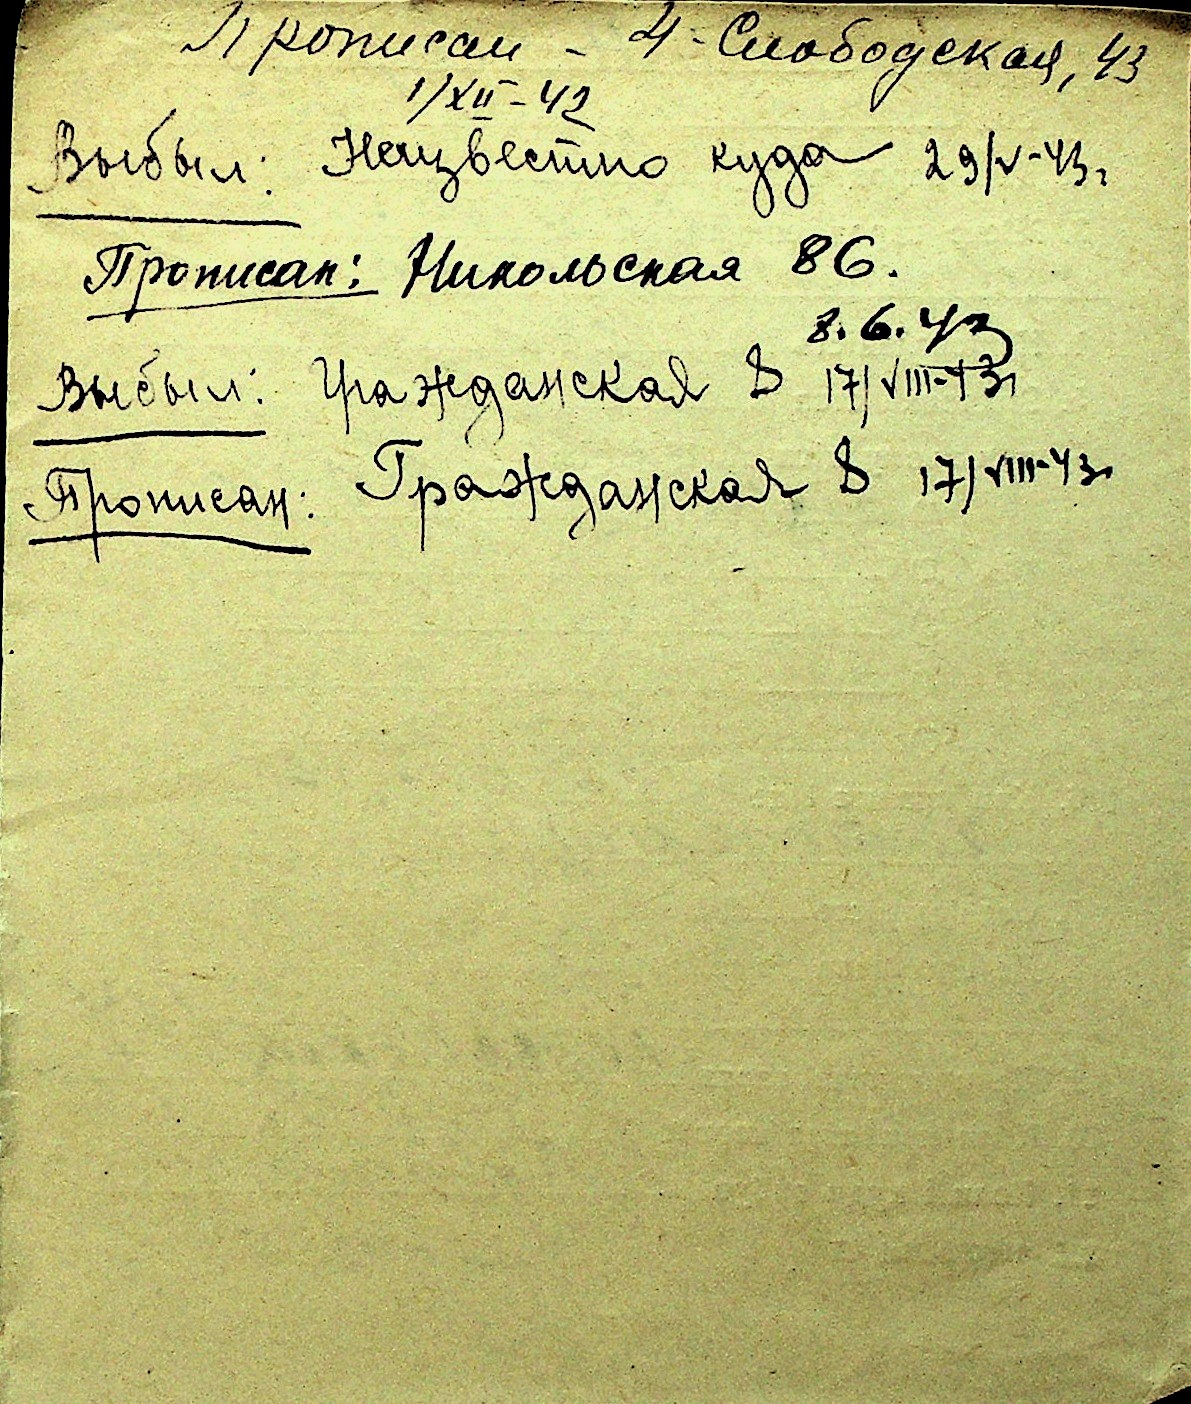 Прописан - 4-Слободская, 43
1/XII-42
Выбыл: Неизвестно куда 29/V-43г
Прописан: Никольская 86.
8.6.43
Выбыл: Гражданская 8 17/VIII-43г
Прописан: Гражданская 8 17/VIII-43г